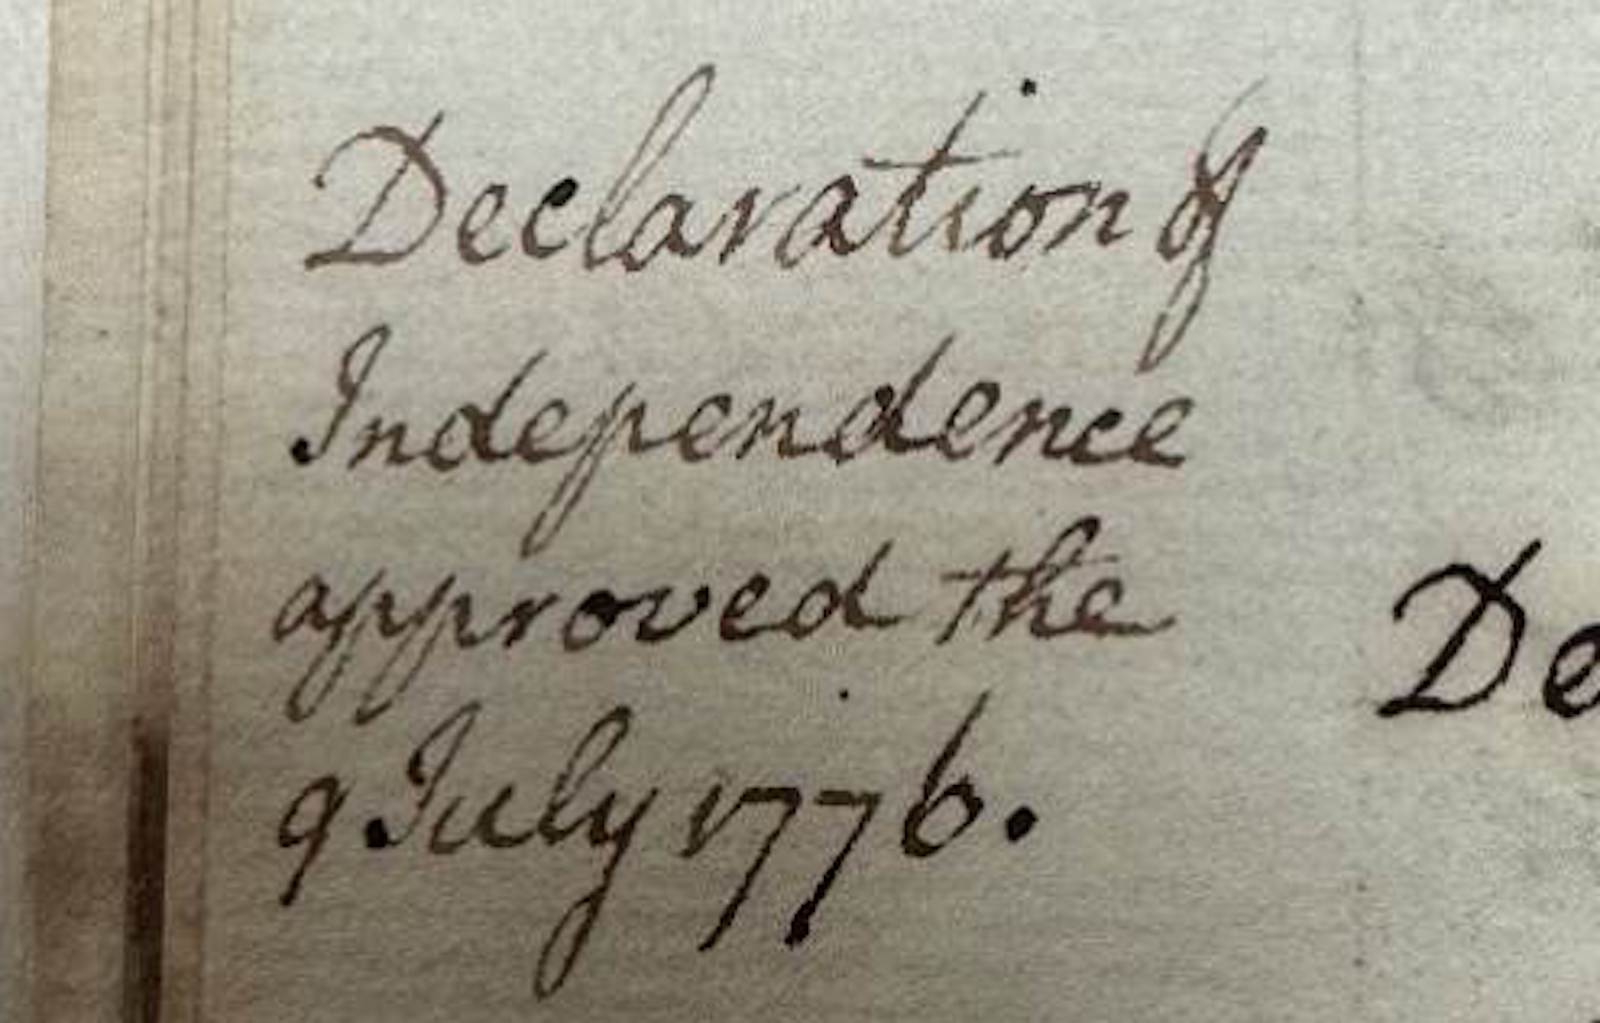 Declaration of
Independence
approved the
9 July 1776.
De